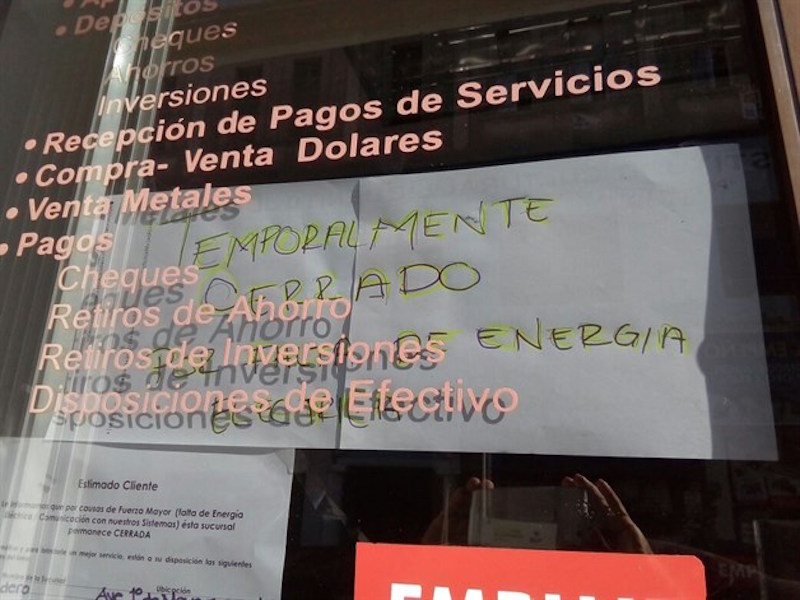 • Depósitos
Cheques
Ahorros
Inversiones
• Recepción de Pagos de Servicios
• Compra- Venta Dolares
• Venta Metales
• Pagos
Cheques
Retiros de Ahorro
Retiros de Inversiones
Disposiciones de Efectivo
TEMPORALMENTE
CERRADO
POR FALTA DE ENERGIA
Estimado Cliente
informamos que por causas de Fuerza Mayor (falta de Energía
Eléctrica / Comunicación con nuestros Sistemas) ésta sucursal
permanece CERRADA
para brindarle un mejor servicio, están a su disposición las siguientes
Nombre de la Sucursal
Ubicación
Ave 1º de